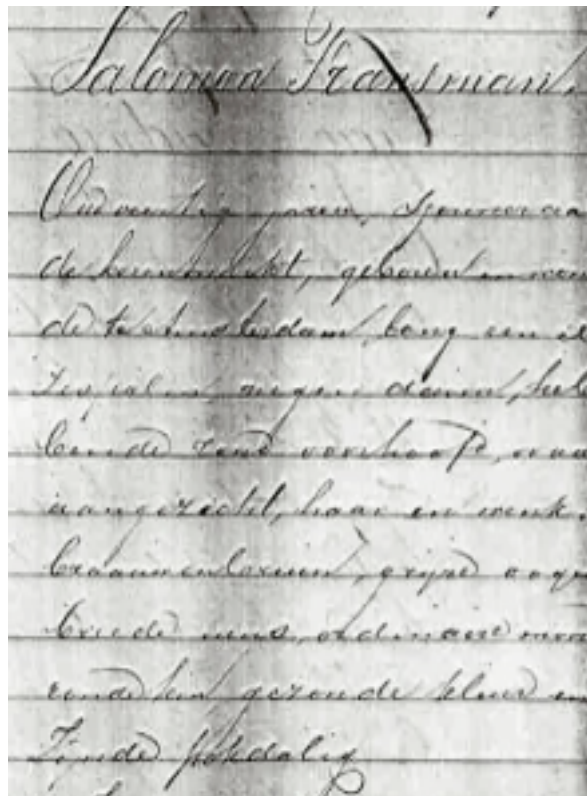 Salomon Fransman.
Oud veertig jaren, sjouwer aa
de korenmarkt, geboren en wo
de te Amsterdam, lang een el
zes palm, negen duim, heb
bende rond voorhoofd, ovaa
aangezicht, haar en wenk
braauwen bruin, grijze ooge
breede neus, ordinaire mon
ronde kin, gezonde kleur en
zijnde pokdalig